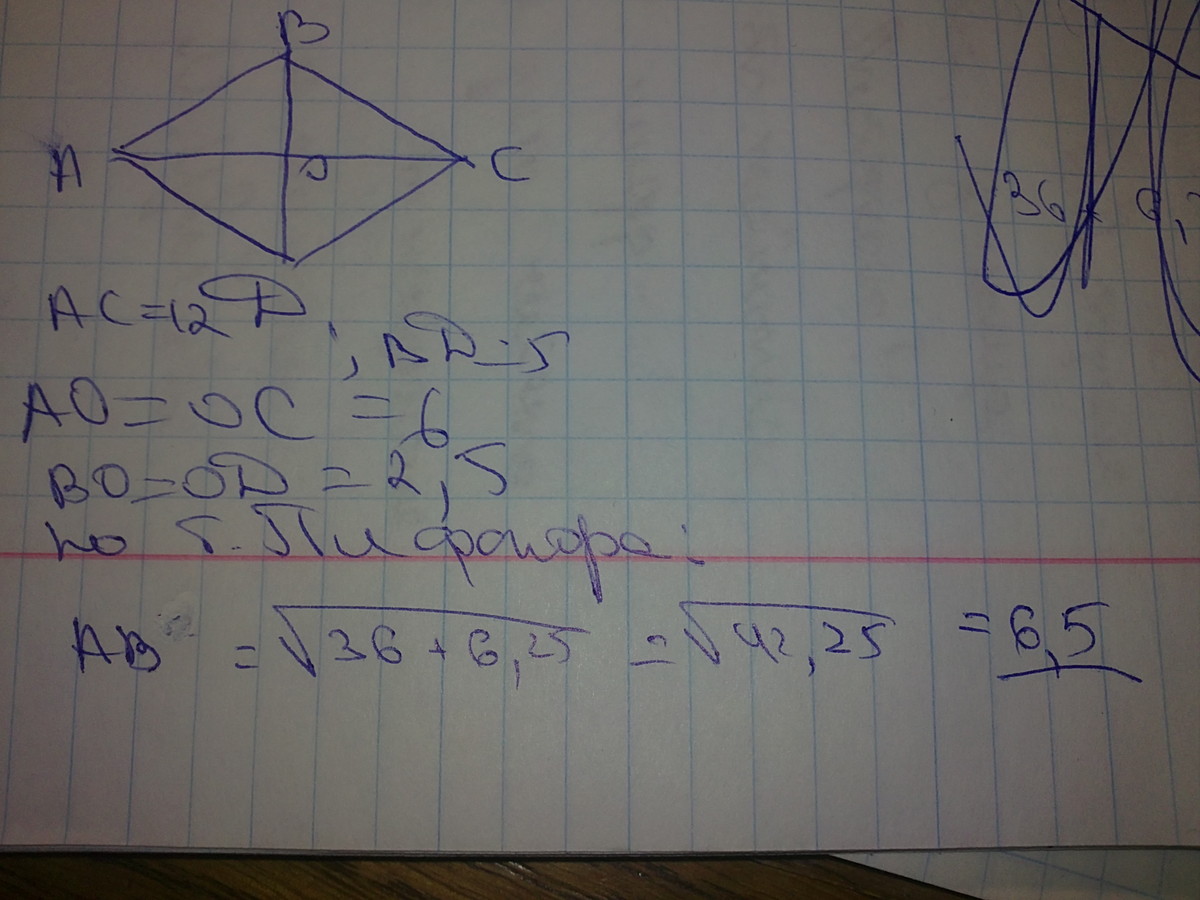 B
A O C
36
AC=12 D
; BD=5
AO=OC=6
BO=OD=2,5
по т. Пифагора:
AB = √36+6,25 = √42,25 = 6,5